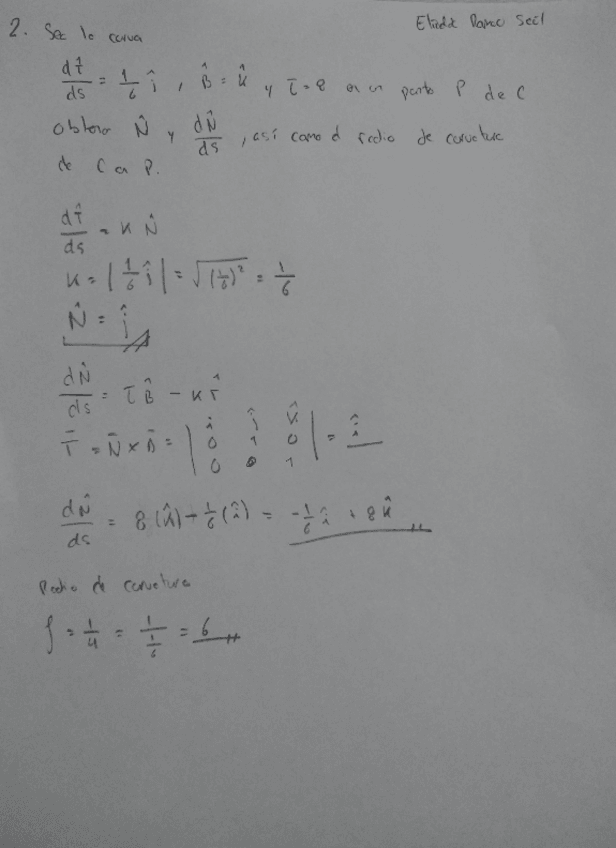 2. Sea la curva
dT̂/ds = 1/6 ĵ , B̂ = k̂ y τ = 8 en un punto P de C
obtener N̂ y dN̂/ds , así como el radio de curvatura
de C en P.
dT̂/ds = κ N̂
κ = | 1/6 ĵ | = √(1/6)² = 1/6
N̂ = ĵ
dN̂/ds = τ B̂ - κ T̂
T̄ = N̄ × B̄ = | î ĵ k̂ |
| 0 1 0 | = î
| 0 0 1 |
dN̂/ds = 8 (k̂) - 1/6 (î) = -1/6 î + 8 k̂
Radio de curvatura
ρ = 1/κ = 1/(1/6) = 6